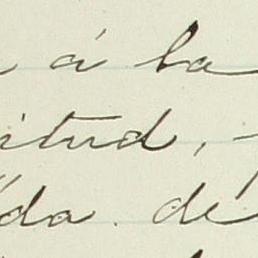 á la
itud,
da de